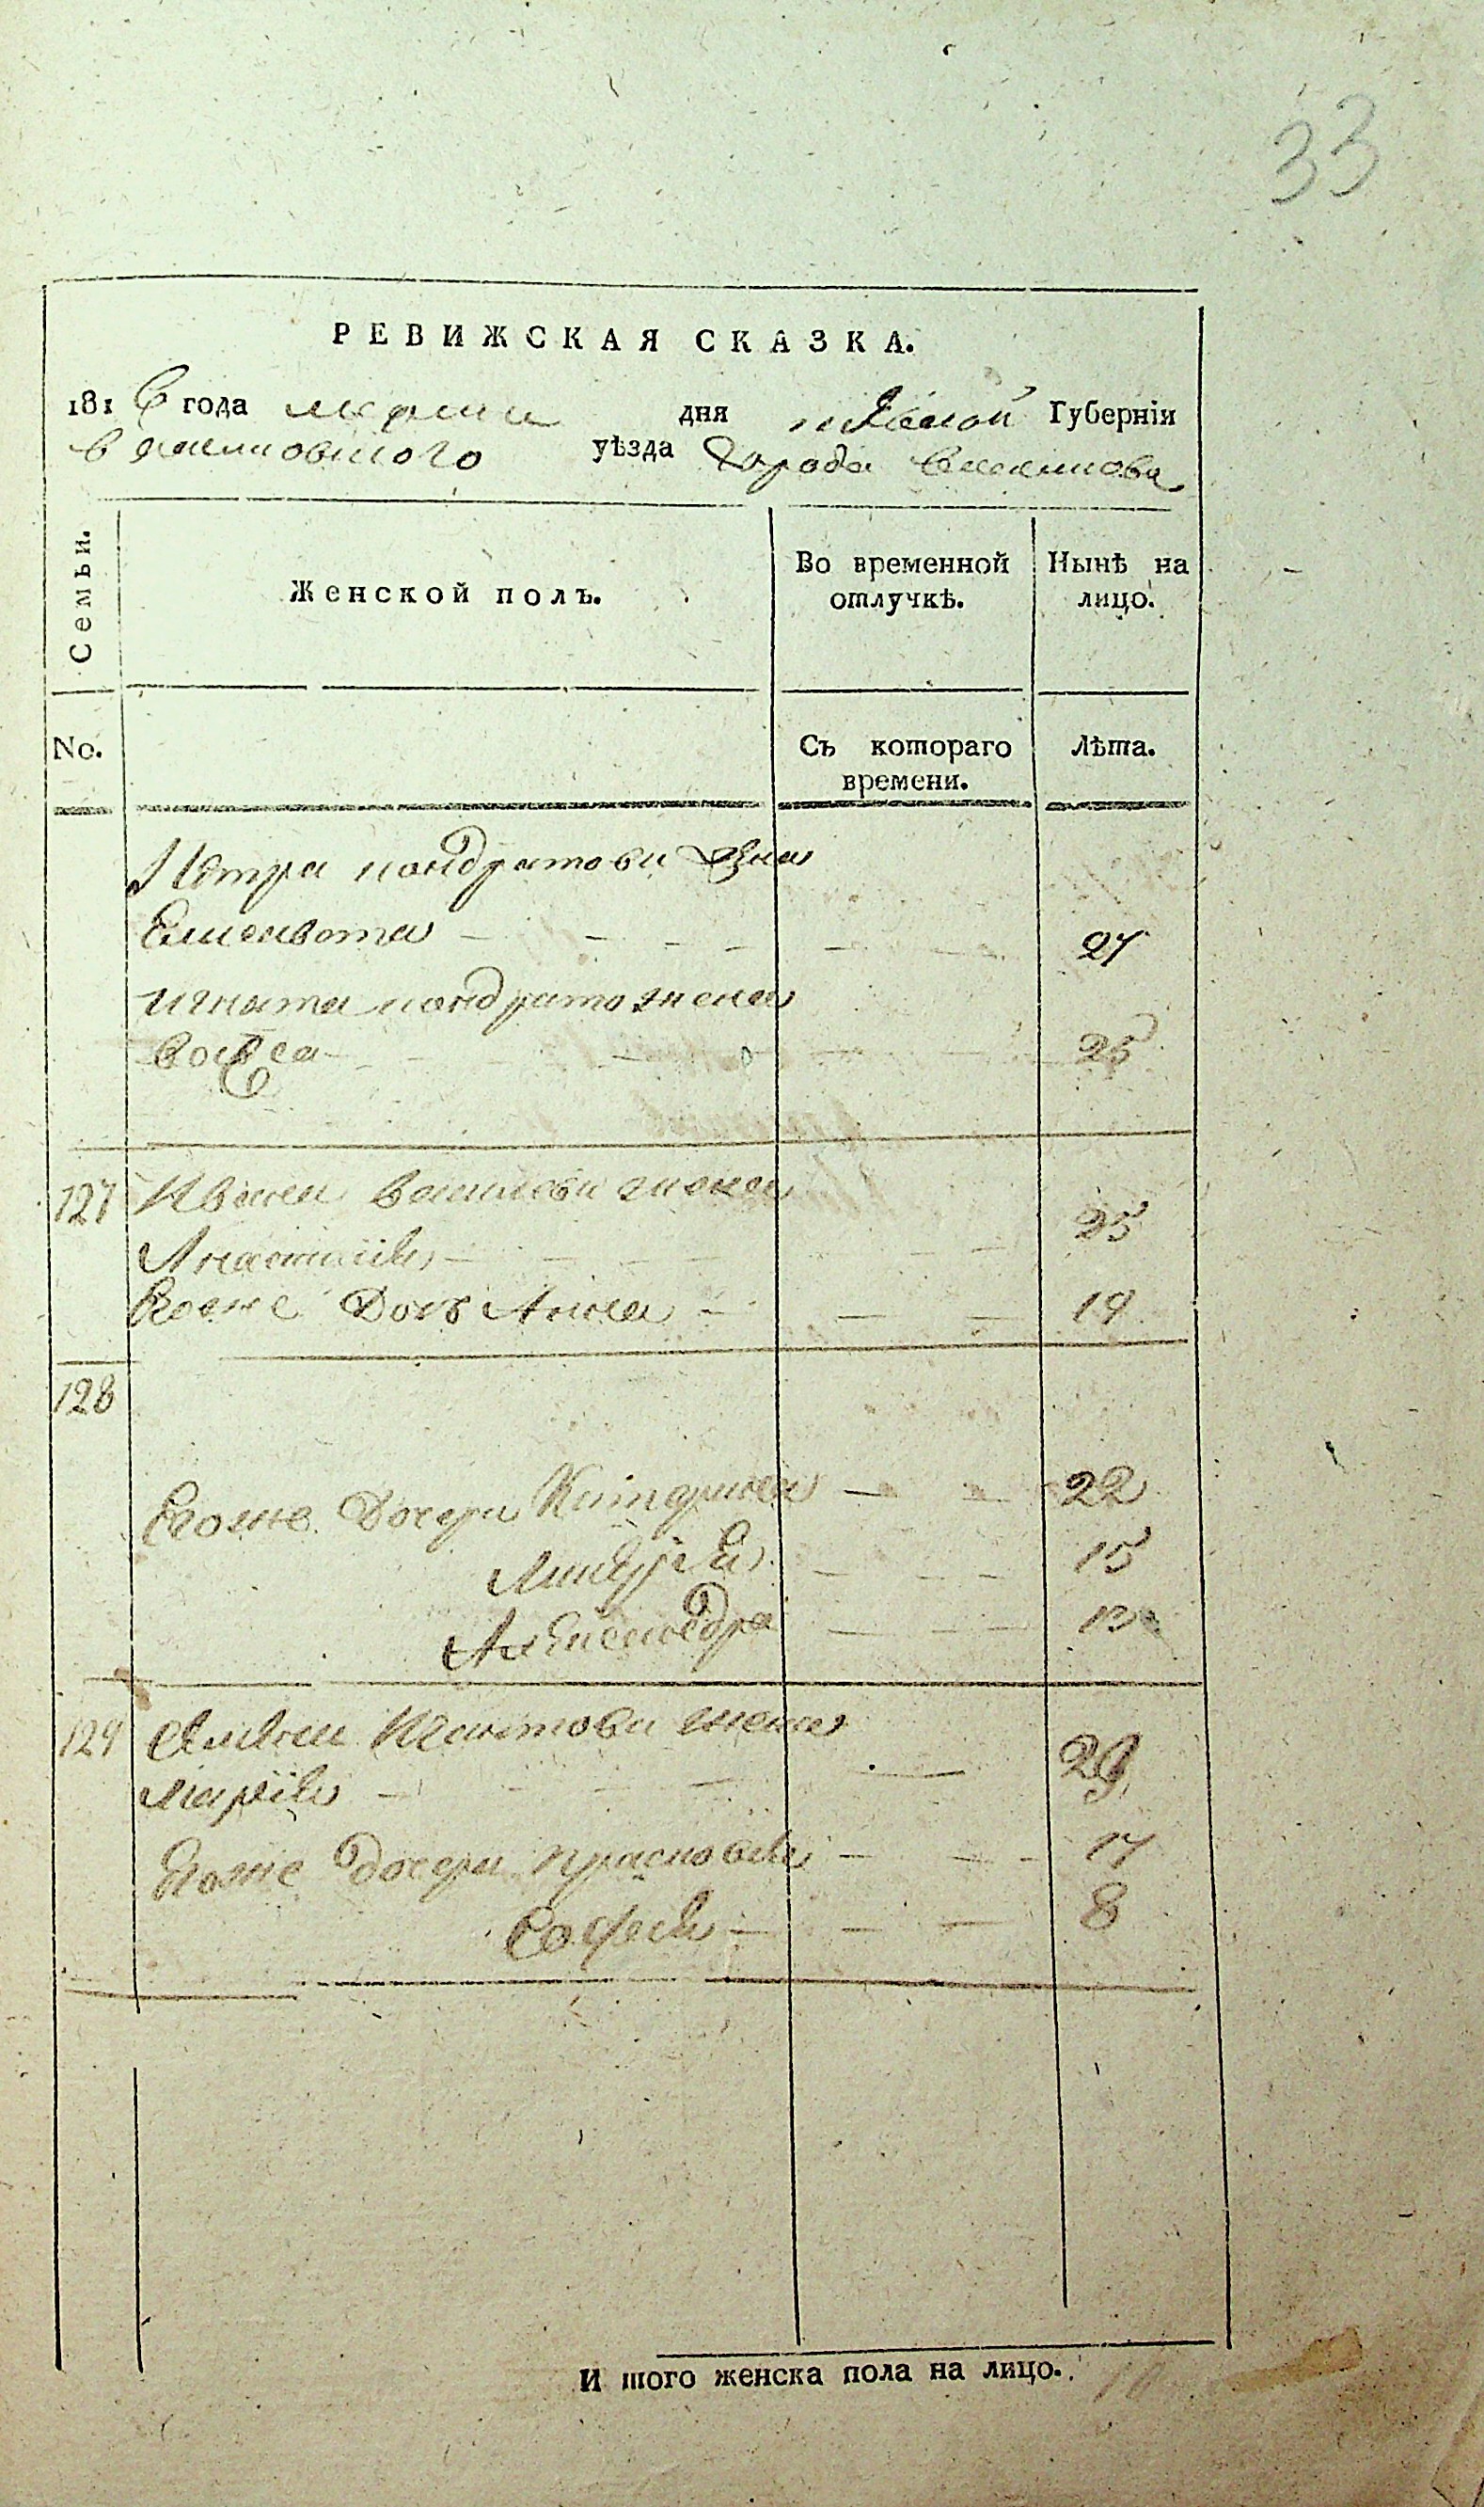 33
РЕВИЖСКАЯ СКАЗКА.
1816 года марта дня Губерніи
уѣзда города
Семьи.
Женской полъ.
Во временной отлучкѣ.
Нынѣ на лицо.
No.
Съ котораго времени.
Лѣта.
Петра кондратова жена
Елисавета - - - - - - 27
игната кондрато жена
25
127 Ивана василева жена
Анастасия - - - - - - 25
Ево же дочь Анна - - - 19
128
Ево же дочери Катерина - - - 22
- - - 15
Александра - - - 13
129 жена
Марія - - - - 29
Ево же дочери прасковья - - - 17
Софья - - - 8
И того женска пола на лицо. 10